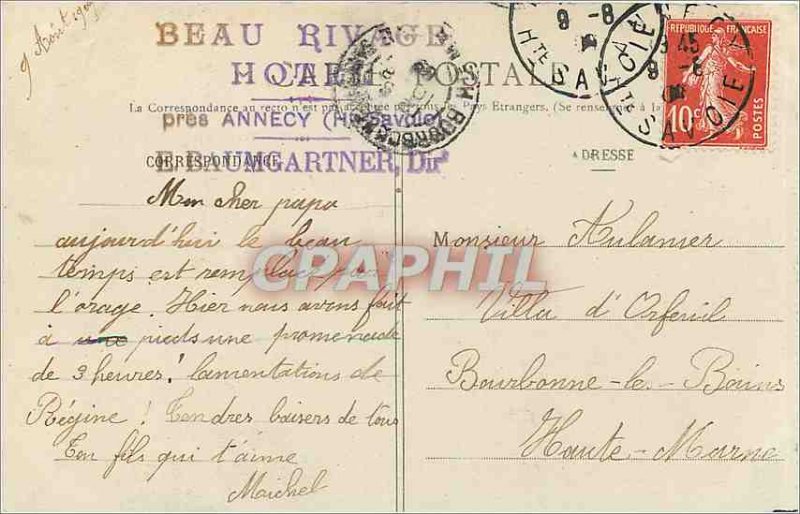 9 Août
BEAU RIVAGE
HOTEL
CARTE POSTALE
La Correspondance au recto n'est pas acceptée par tous les Pays Étrangers, (Se renseigner à la
près ANNECY (Hte-Savoie)
E. BAUMGARTNER, Dir
CORRESPONDANCE
ADRESSE
9 -8
Hte SAVOIE
3 45
9 -8
Hte SAVOIE
REPUBLIQUE FRANÇAISE
10c
POSTES
Mon cher papa
aujourd'hui le beau
temps est remplacé par
l'orage. Hier nous avons fait
à une pieds une promenade
de 3 heures! lamentations de
Régine! Tendres baisers de tous
Ton fils qui t'aime
Michel
Monsieur Aulanier
Villa d'Orfeuil
Bourbonne-les-Bains
Haute-Marne
CPAPHIL